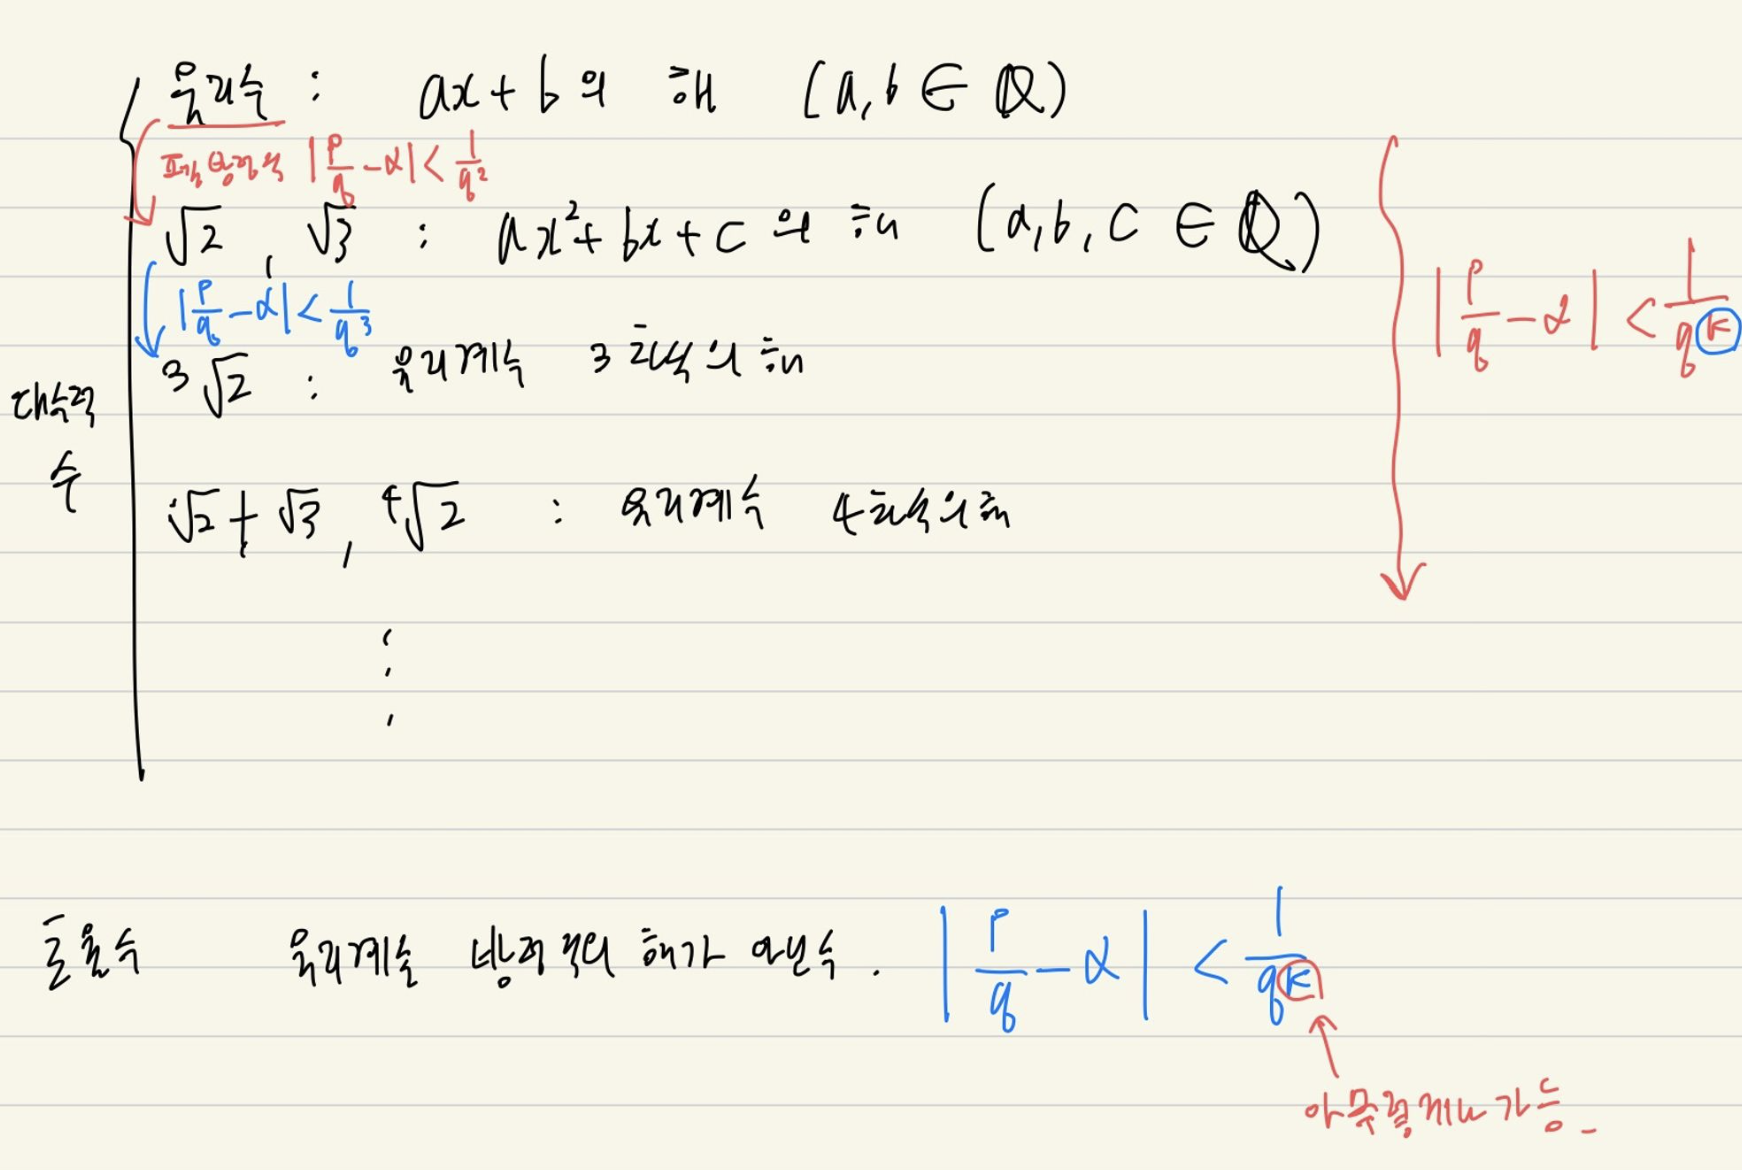 유리수 : ax + b 의 해 (a, b ∈ Q)
펠 방정식 |p/q - α| < 1/q²
√2 , √3 : ax² + bx + c 의 해 (a, b, c ∈ Q)
|p/q - α| < 1/q³
|p/q - α| < 1/q^k
³√2 : 유리계수 3차식의 해
대수적
수
√2 + √3 , ⁴√2 : 유리계수 4차식의 해
⋮
초월수 유리계수 방정식의 해가 아닌 수. |p/q - α| < 1/q^k
아무렇게나 가능